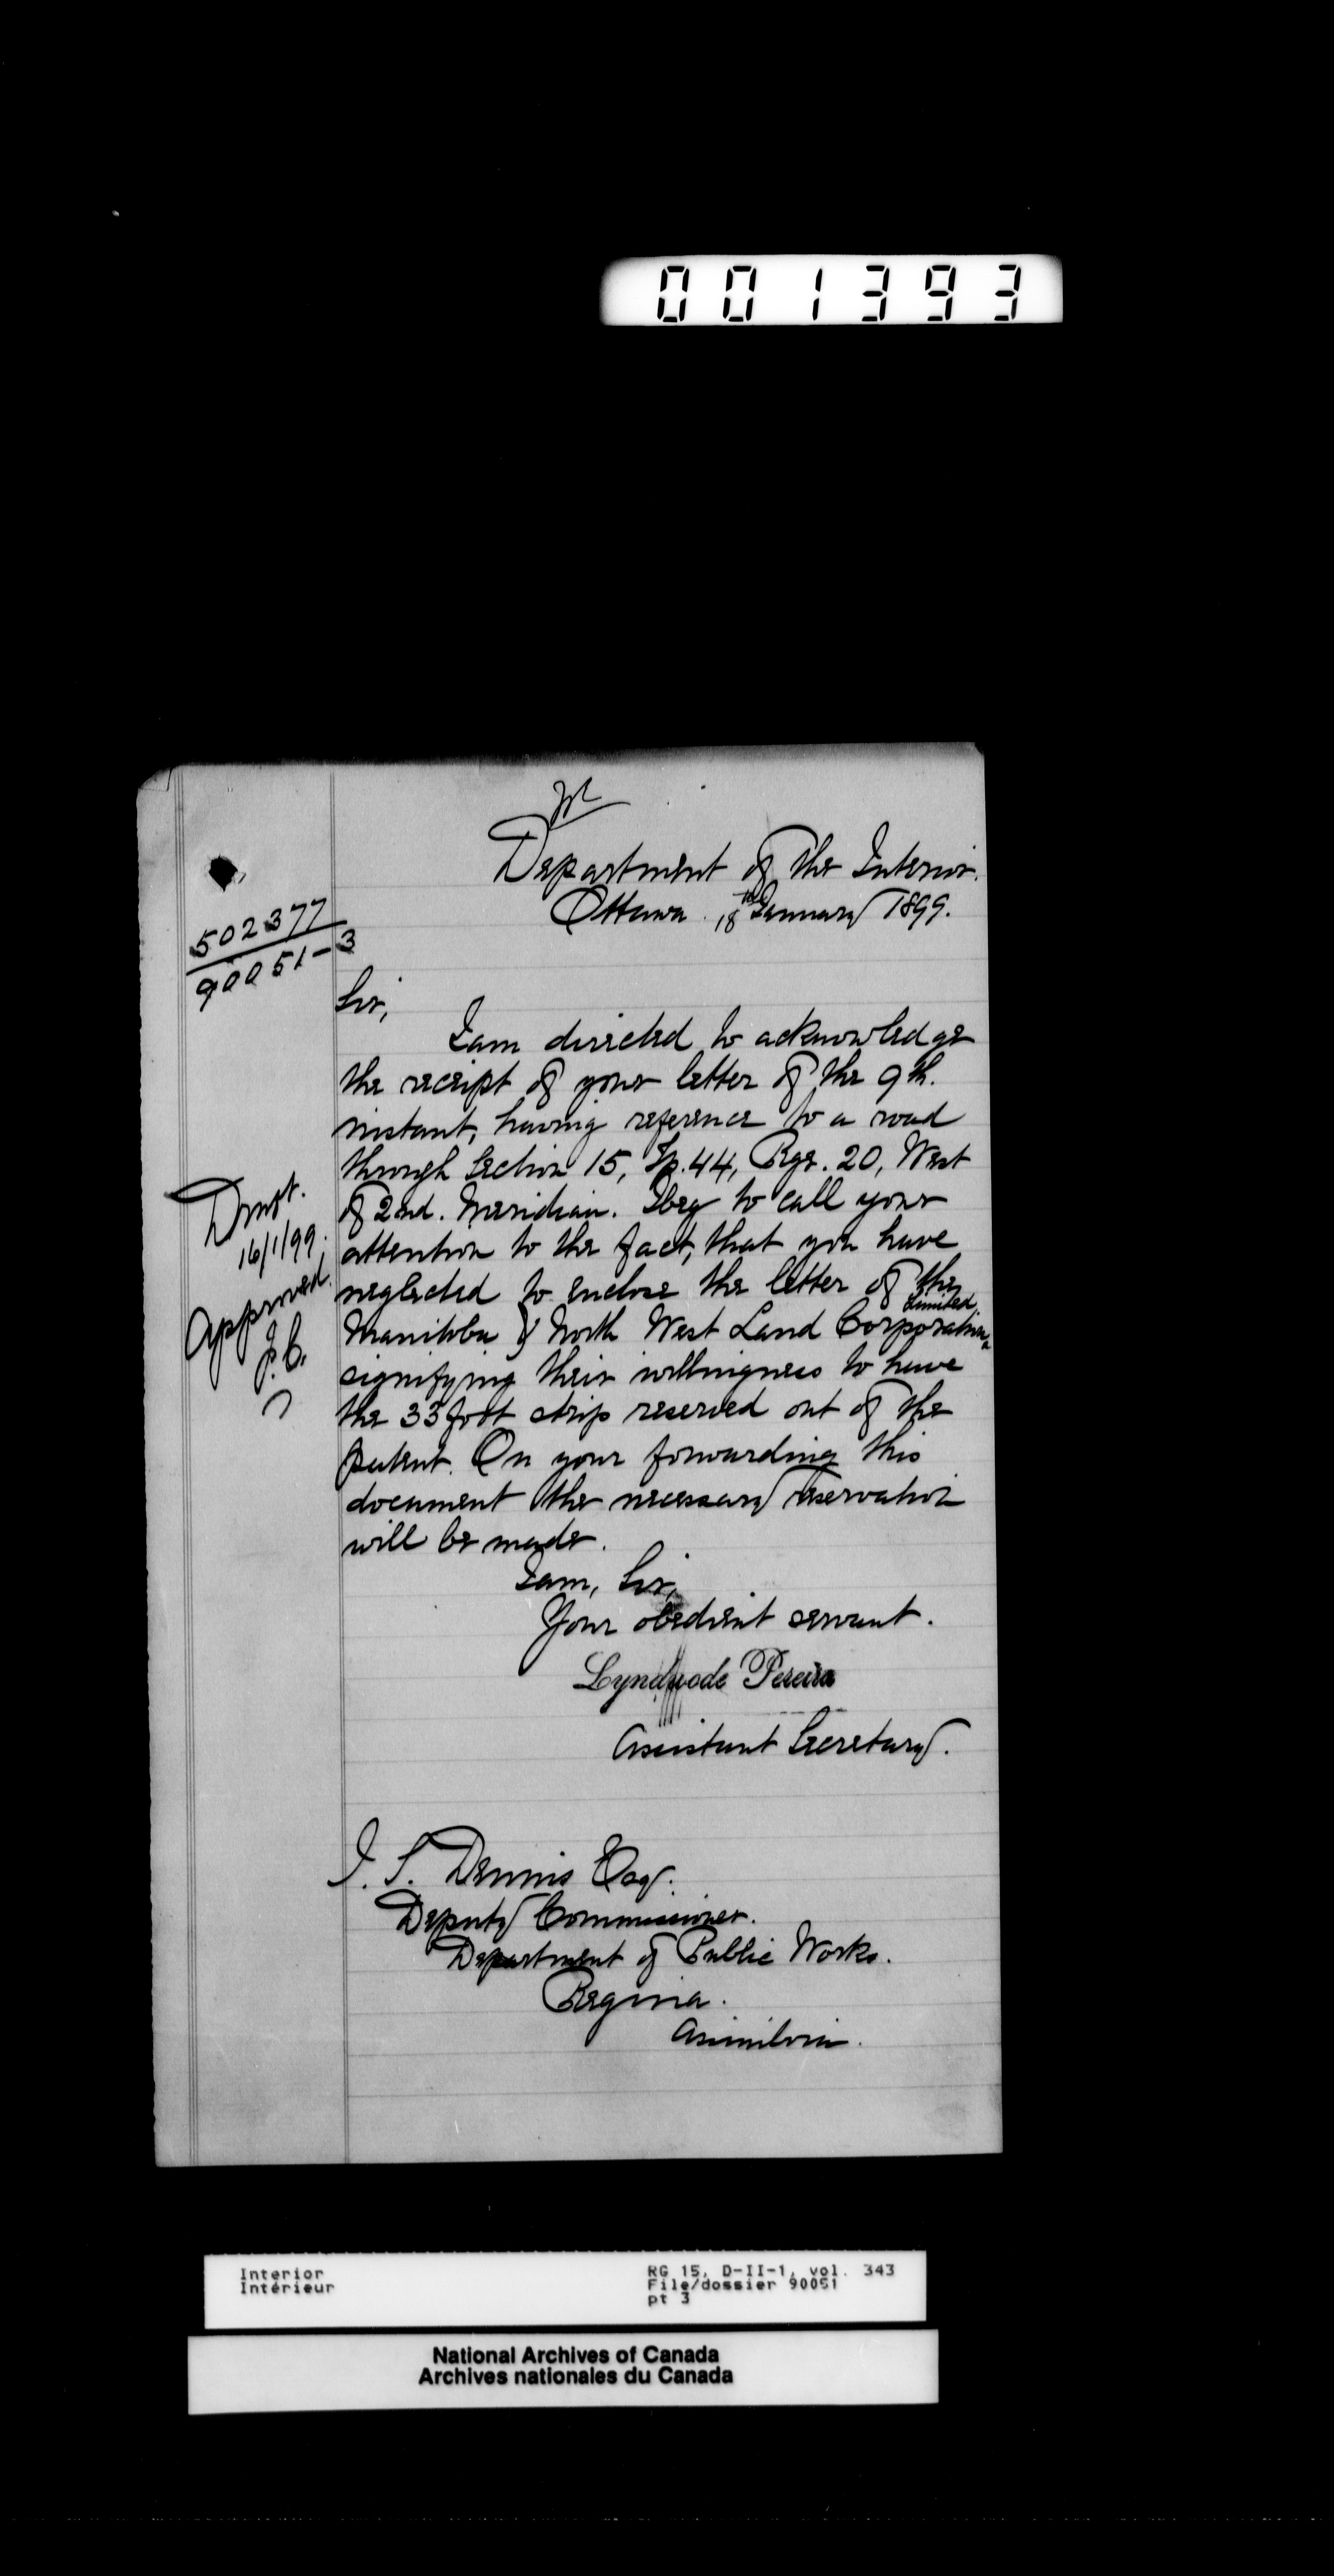 001393
Department of the Interior.
Ottawa. 18th January 1899.
502377
90051-3
Sir,
I am directed to acknowledge
the receipt of your letter of the 9th.
instant, having reference to a road
through Section 15, Tp. 44, Rge. 20, West
of 2nd. Meridian. I beg to call your
attention to the fact, that you have
neglected to enclose the letter of the
Limited.
Manitoba & North West Land Corporation,
signifying their willingness to have
the 33 foot strip reserved out of the
patent. On your forwarding this
document the necessary reservation
will be made.
Draft.
16/1/99.
Approved
I am, Sir,
Your obedient servant.
Lyndwode Pereira
Assistant Secretary.
J. S. Dennis Esq.
Deputy Commissioner.
Department of Public Works.
Regina.
Assiniboia.
Interior
Intérieur
RG 15, D-II-1, vol. 343
File/dossier 90051
pt 3
National Archives of Canada
Archives nationales du Canada